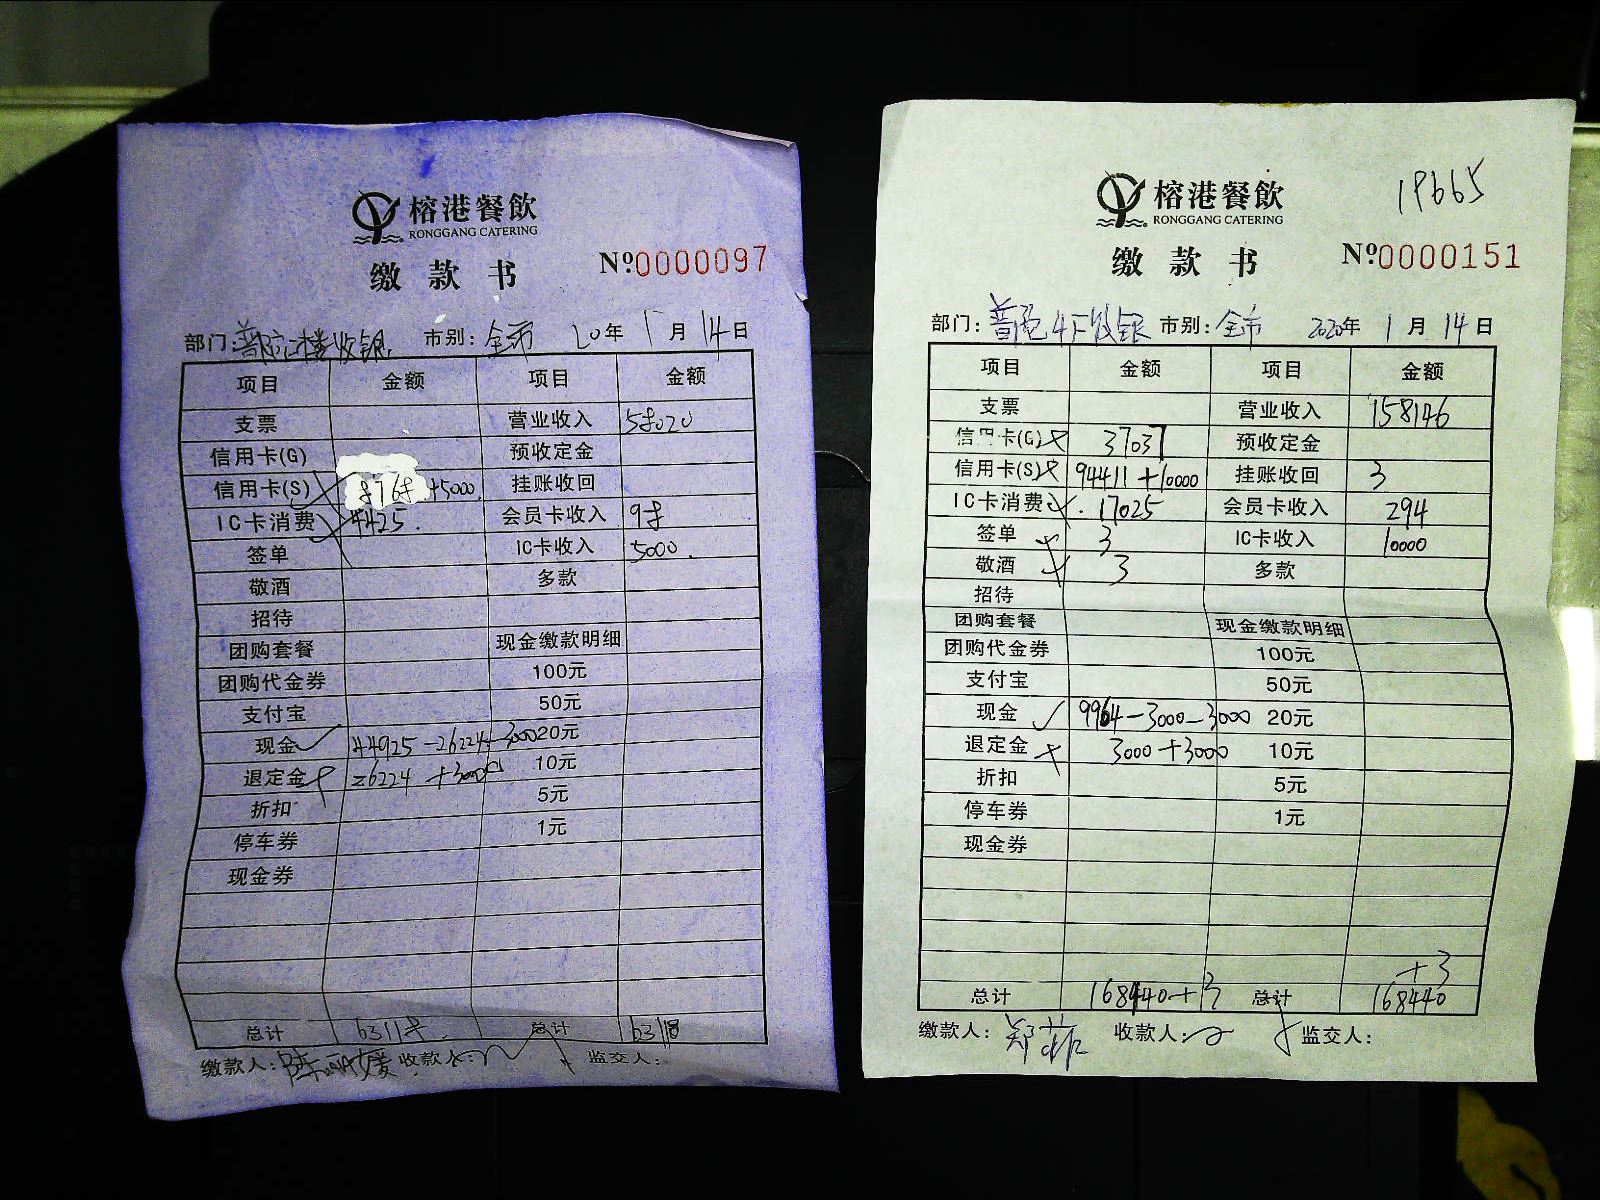 榕港餐飲
RONGGANG CATERING
缴款书
№0000097
部门：普陀二楼收银 市别：全市 20年 1月 14日
项目 金额 项目 金额
支票 营业收入 58020
信用卡(G) 预收定金
信用卡(S) 8768+5000 挂账收回
IC卡消费 4425. 会员卡收入 98
签单 IC卡收入 5000.
敬酒 多款
招待
团购套餐 现金缴款明细
团购代金券 100元
支付宝 50元
现金 44925-26224-3000 20元
退定金 26224+3000 10元
折扣 5元
停车券 1元
现金券
总计 63118 总计 63118
缴款人： 收款人： 监交人：
榕港餐飲
RONGGANG CATERING
19665
缴款书
№0000151
部门：普陀4F收银 市别：全市 2020年 1月 14日
项目 金额 项目 金额
支票 营业收入 158146
信用卡(G) 37037 预收定金
信用卡(S) 94411+10000 挂账收回 3
IC卡消费 17025 会员卡收入 294
签单 3 IC卡收入 10000
敬酒 3 多款
招待
团购套餐 现金缴款明细
团购代金券 100元
支付宝 50元
现金 9964-3000-3000 20元
退定金 3000+3000 10元
折扣 5元
停车券 1元
现金券
+3
总计 168440+3 总计 168440
缴款人： 收款人： 监交人：